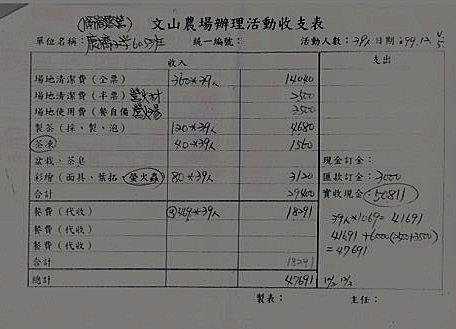 文山農場辦理活動收支表
單位名稱： 統一編號： 活動人數：39人 日期：99.12.
收入 支出
場地清潔費（全票） 360*39人 14040
場地清潔費（半票） 2500
場地使用費（餐自備） 3500
製茶（採、製、泡） 120*39人 4680
茶凍 40*39人 1560
盆栽、茶皂 現金訂金：
彩繪（面具、葉拓、螢火蟲） 80*39人 3120 匯款訂金：3000
合計 29400 實收現金：50811
餐費（代收） 469*39人 18291 39人*1069=41691
餐費（代收） 41691+6000(2500+3500)
餐費（代收） =47691
合計 18291
總計 47691
製表： 主任：